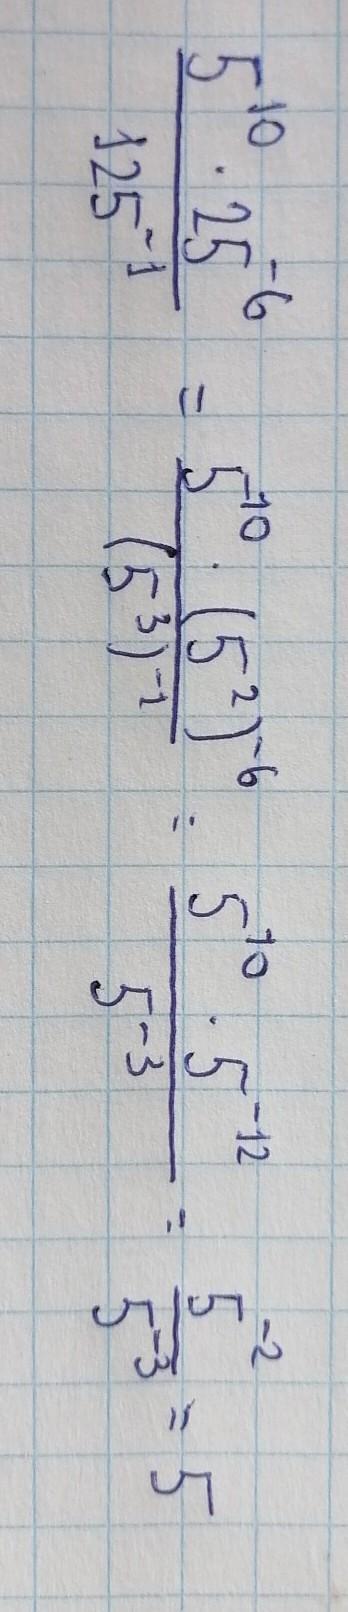 5^10 · 25^-6 / 125^-1 = 5^10 · (5^2)^-6 / (5^3)^-1 = 5^10 · 5^-12 / 5^-3 = 5^-2 / 5^-3 = 5